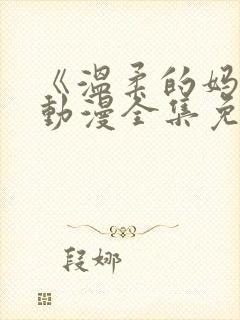 《温柔的妈
動漫全集免
段娜